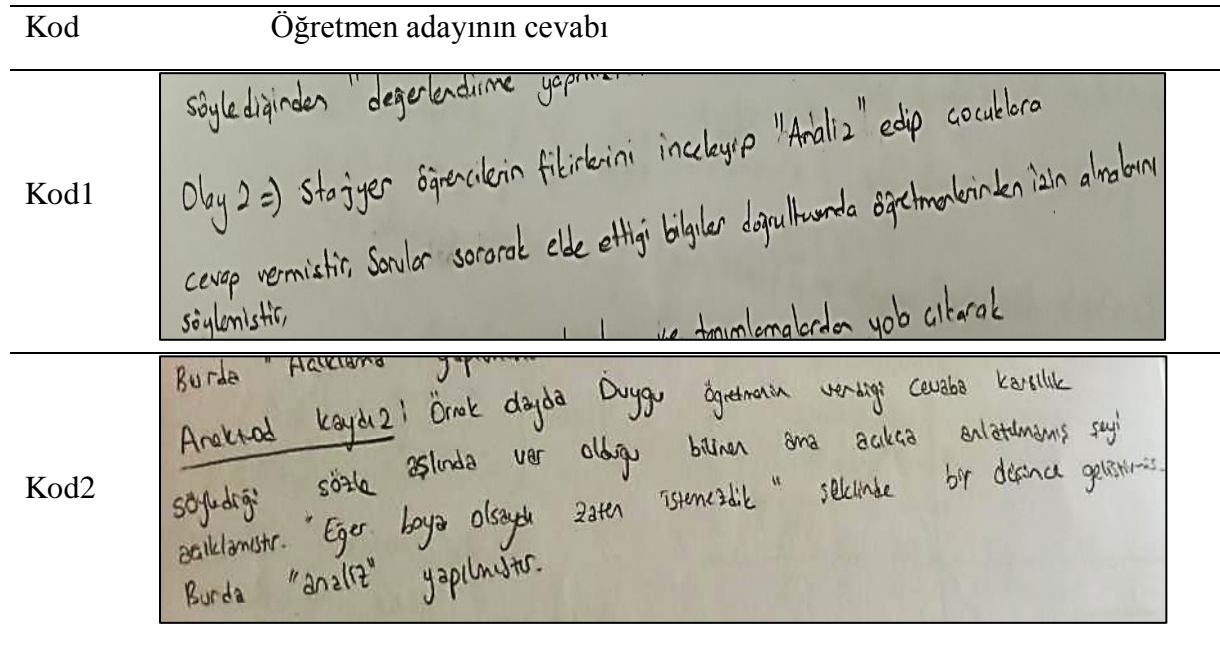 Kod Öğretmen adayının cevabı
Kod1
söylediğinden "değerlendirme
Olay 2 => Stajyer öğrencilerin fikirlerini inceleyip "Analiz" edip çocuklara
cevap vermiştir, Sorular sorarak elde ettiği bilgiler doğrultusunda öğretmenlerinden izin almalarını
söylemiştir,
ve tanımlamalardan yola çıkarak
Kod2
Burda "Açıklama
Anektod kaydı2: Örnek olayda Duygu öğretmenin verdiği cevaba karşılık
söylediği sözle aslında var olduğu bilinen ama açıkça anlatılmamış şeyi
açıklamıştır. "Eğer boya olsaydı zaten istemezdik" şeklinde bir düşünce geliştirmiş.
Burda "analiz" yapılmıştır.